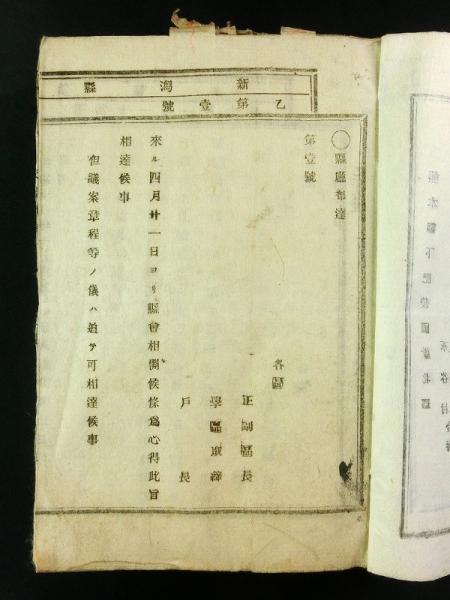 新潟縣
乙第壹號
◯縣廳布達
第壹號
各區
正副區長
學區取締
戶長
來ル四月廿一日ヨリ縣會相開候條爲心得此旨
相達候事
但議案章程等ノ儀ハ追テ可相達候事